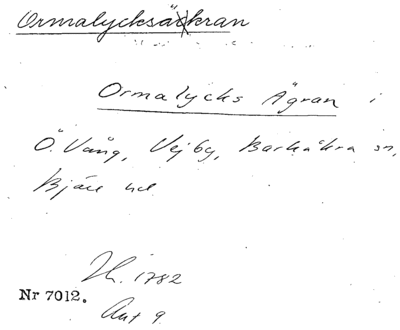 Ormalycksäkran
Ormalycks Ägran i
Ö. Vång, Vejby, Barkåkra sn,
Bjäre hd
Lh. 1782
Nr 7012.
Akt 9